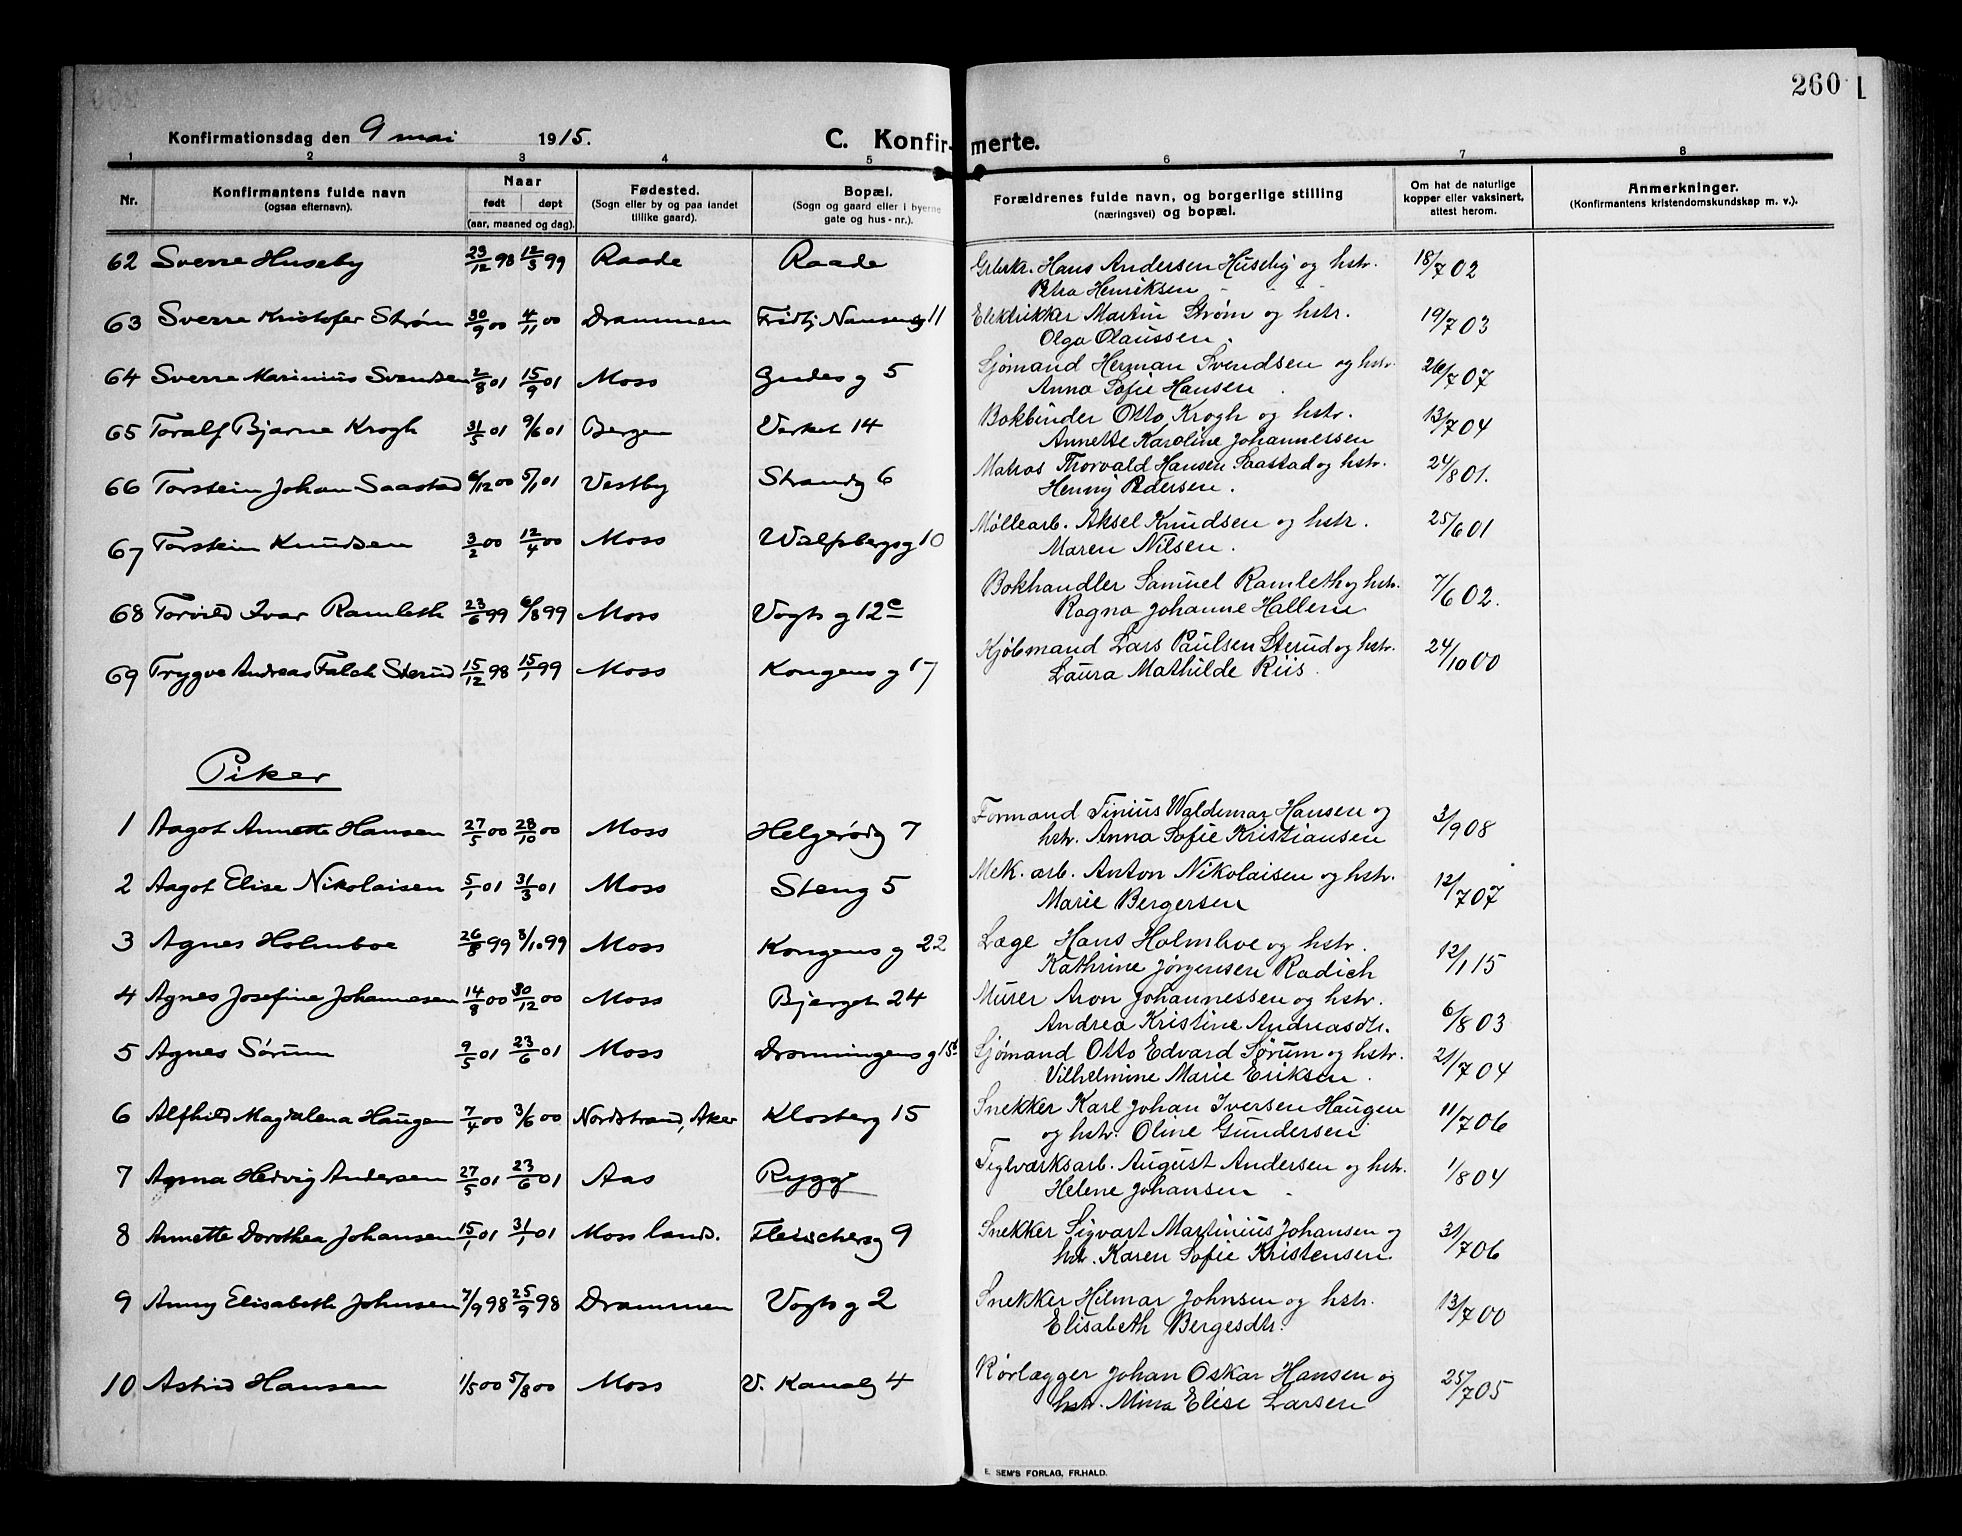 260
Konfirmationsdag den 9 mai 1915.
C. Konfirmerte.
1 2 3 4 5 6 7 8
Nr. Konfirmantens fulde navn (ogsaa efternavn). Naar født døpt (aar, maaned og dag). Fødested. (Sogn eller by og paa landet tillike gaard). Bopæl. (Sogn og gaard eller i byerne gate og hus-nr.). Forældrenes fulde navn, og borgerlige stilling (næringsvei) og bopæl. Om hat de naturlige kopper eller vaksinert, attest herom. Anmerkninger. (Konfirmantens kristendomskundskap m. v.).
62 Sverre Huseby 23/12 98 12/3 99 Raade Raade Hans Andersen Huseby og hstr. 18/7 02
Petra Henriksen
63 Sverre Kristofer Strøm 30/9 00 4/11 00 Drammen Fridtj. Nansensg 11 Elektrikker Martin Strøm og hstr. 19/7 03
Olga Olaussen.
64 Sverre Marinius Svendsen 2/8 01 15/9 01 Moss Gudes g 5 Sjømand Herman Svendsen og hstr. 26/7 07
Anna Sofie Hansen
65 Toralf Bjarne Krogh 31/5 01 9/6 01 Bergen Verket 14 Bokbinder Otto Krogh og hstr. 13/7 04
Annette Karoline Johannessen
66 Torstein Johan Saastad 6/12 00 5/1 01 Vestby Strandg 6 Matros Thorvald Hansen Saastad og hstr. 24/8 01.
Henny Pedersen.
67 Torstein Knudsen 3/2 00 12/4 00 Moss Walpsbergsg 10 Møllearb. Aksel Knudsen og hstr. 25/6 01
Maren Nilsen.
68 Torvild Ivar Ramleth 23/6 99 6/8 99 Moss Vogts g 12c Bokhandler Samuel Ramleth og hstr. 7/6 02.
Ragna Johanne Hallem
69 Trygve Andreas Falch Sterud 15/12 98 15/1 99 Moss Kongens g 17 Kjøbmand Lars Paulsen Sterud og hstr. 24/10 00
Laura Mathilde Riis.
Piker
1 Aagot Annette Hansen 27/5 00 28/10 00 Moss Helgerødg 7 Formand Tinius Waldemar Hansen og 3/9 08
hstr. Anna Sofie Kristiansen
2 Aagot Elise Nikolaisen 5/1 01 31/3 01 Moss Steng 5 Mek. arb. Anton Nikolaisen og hstr. 12/7 07
Marie Bergersen
3 Agnes Holmboe 26/8 99 3/10 99 Moss Kongens g 22 Læge Hans Holmboe og hstr. 12/1 15
Kathrine Jørgensen Radich
4 Agnes Josefine Johannesen 14/8 00 30/12 00 Moss Bjerget 24 Murer Aron Johannessen og hstr. 6/8 03
Andrea Kristine Andreasdtr.
5 Agnes Sørum 9/5 01 23/6 01 Moss Dronningens g 15b Sjømand Otto Edvard Sørum og hstr. 21/7 04
Vilhelmine Marie Eriksen.
6 Alfhild Magdalena Haugen 7/4 00 3/6 00 Nordstrand, Aker Klosterg 15 Snekker Karl Johan Iversen Haugen 11/7 06
og hstr. Oline Gundersen
7 Agna Hedvig Andersen 27/5 01 23/6 01 Aas Rygge Teglværksarb. August Andersen og hstr. 1/8 04
Helene Johansen
8 Annette Dorothea Johansen 15/1 01 31/1 01 Moss lands. Fleischersg 9 Snekker Sigvart Martinius Johansen og 31/7 06
hstr. Karen Sofie Kristensen
9 Anny Elisabeth Johnsen 7/9 98 25/9 98 Drammen Vogts g 2 Snekker Hilmar Johnsen og hstr. 13/7 00
Elisabeth Bergesdtr.
10 Astrid Hansen 1/5 00 5/8 00 Moss V. Kanalg 4 Rørlægger Johan Oskar Hansen og 25/7 05
hstr. Mina Elise Larsen
E. SEM'S FORLAG, FR.HALD.